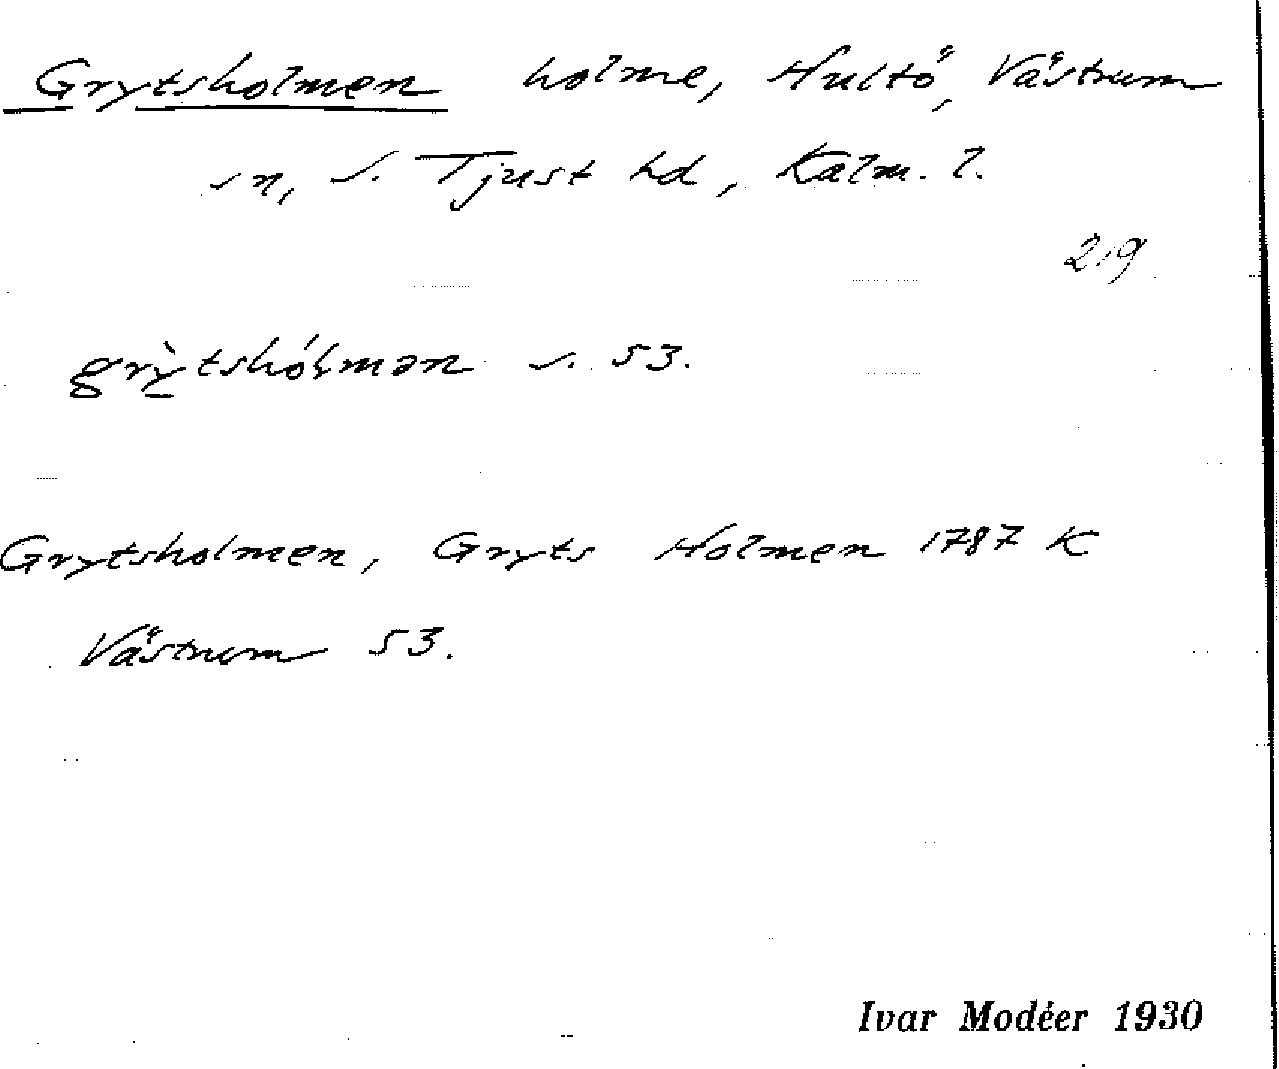 Grytsholmen holme, Hultö, Västrum
sn, S. Tjust hd, Kalm. l.
219
grỳtshólmən s. 53.
Grytsholmen, Gryts Holmen 1787 K
Västrum 53.
Ivar Modéer 1930